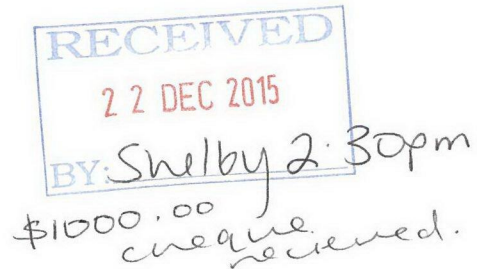 RECEIVED
22 DEC 2015
BY: Shelby 2:30pm
$1000.00
cheque
recieved.